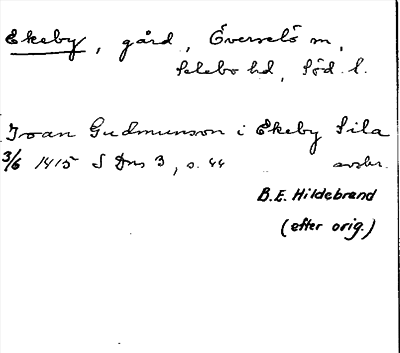 Ekeby, gård, Överselö sn,
Selebo hd, Söd. l.
Ioan Gudmunson i Ekeby Sila
3/6 1415 S Dns 3, s. 44 avskr.
B.E. Hildebrand
(efter orig.)